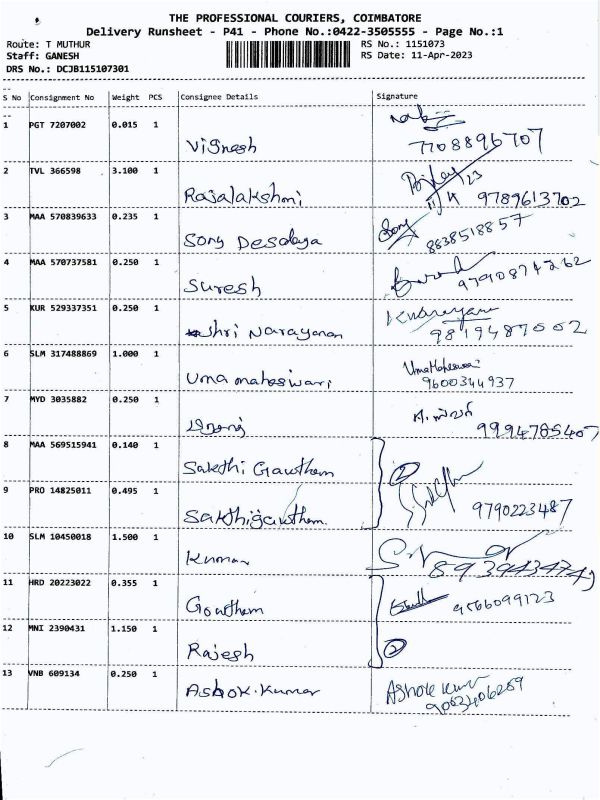 THE PROFESSIONAL COURIERS, COIMBATORE
Delivery Runsheet - P41 - Phone No.:0422-3505555 - Page No.:1
Route: T MUTHUR RS No.: 1151073
Staff: GANESH RS Date: 11-Apr-2023
DRS No.: DCJB115107301
S No Consignment No Weight PCS Consignee Details Signature
1 PGT 7207002 0.015 1 Vignesh 7708896707
2 TVL 366598 3.100 1 Rajalakshmi 9789613702
3 MAA 570839633 0.235 1 Sony Desalaya Sony 8838518857
4 MAA 570737581 0.250 1 Suresh 9790874262
5 KUR 529337351 0.250 1 Shri Narayanan 9819487002
6 SLM 317488869 1.000 1 Uma maheswari UmaMaheswari 9600344937
7 MYD 3035882 0.250 1 9994785407
8 MAA 569515941 0.140 1 Sakthi Gowthem 2
9 PRO 14825011 0.495 1 Sakthigowthem 9790223487
10 SLM 10450018 1.500 1 Kumar
11 HRD 20223022 0.355 1 Goutham 9566099123
12 MNI 2390431 1.150 1 Rajesh 2
13 VNB 609134 0.250 1 Ashok.Kumar Ashok Kumar 9003406289